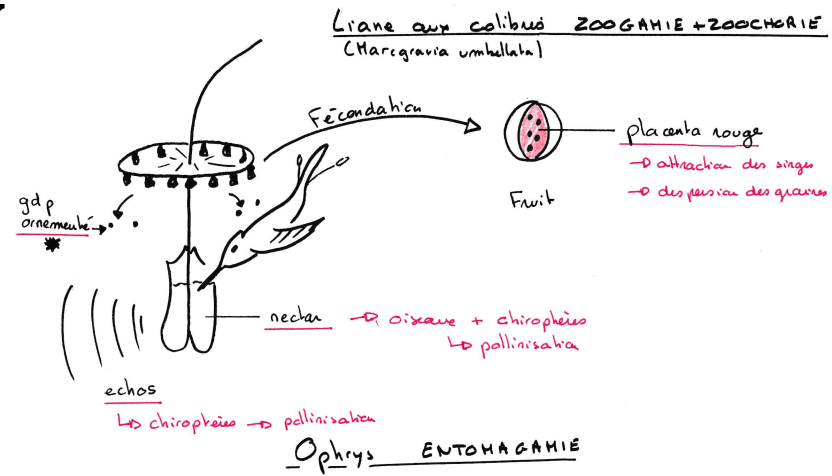 Liane aux colibris ZOOGAMIE + ZOOCHORIE
(Marcgravia umbellata)
Fécondation
placenta rouge
→ attraction des singes
→ dispersion des graines
Fruit
gdp
ornementé
nectar → oiseaux + chiroptères
↳ pollinisation
echos
↳ chiroptères → pollinisation
Ophrys ENTOMAGAMIE